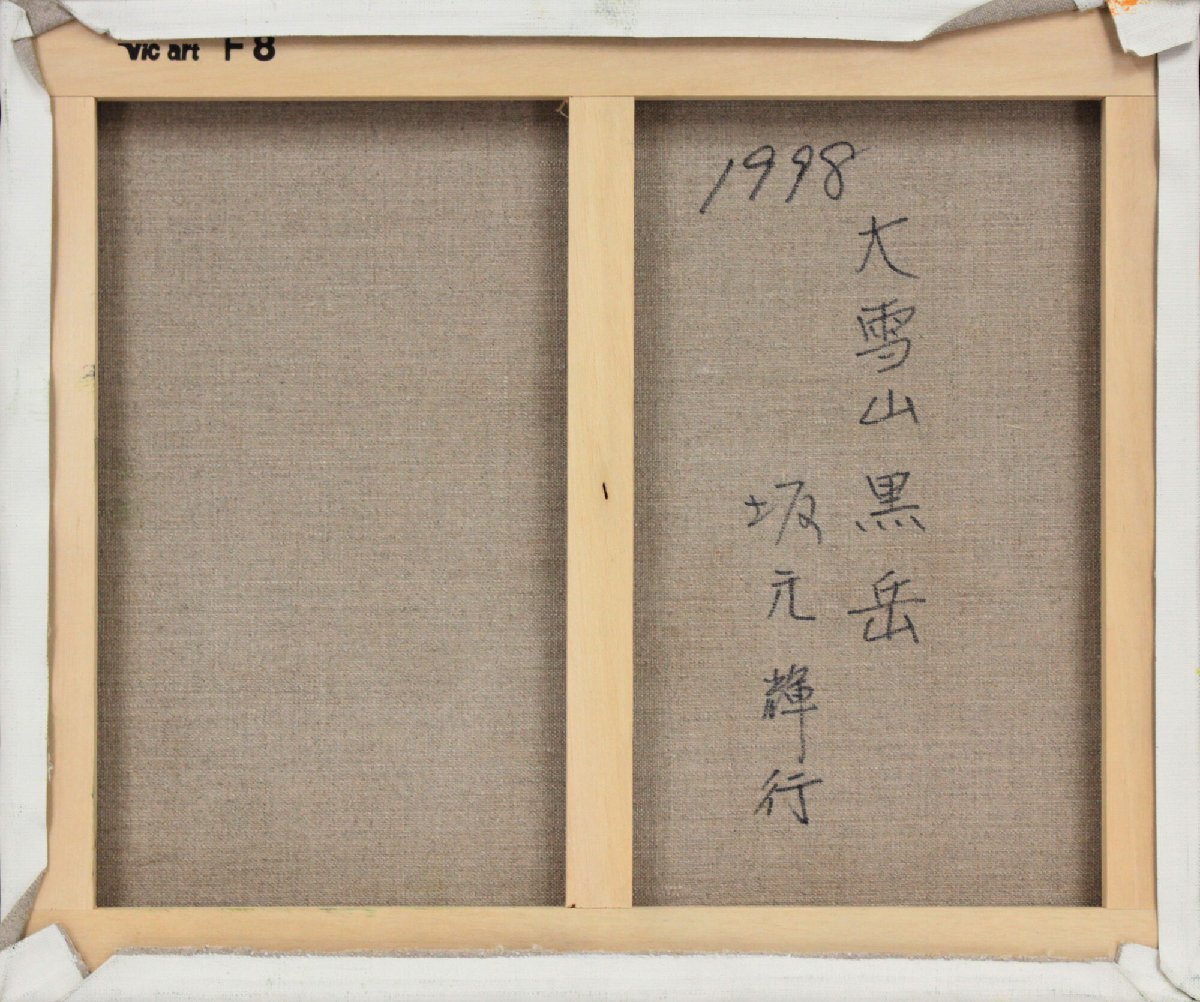 vic art F8
1998
大雪山黒岳
坂元輝行